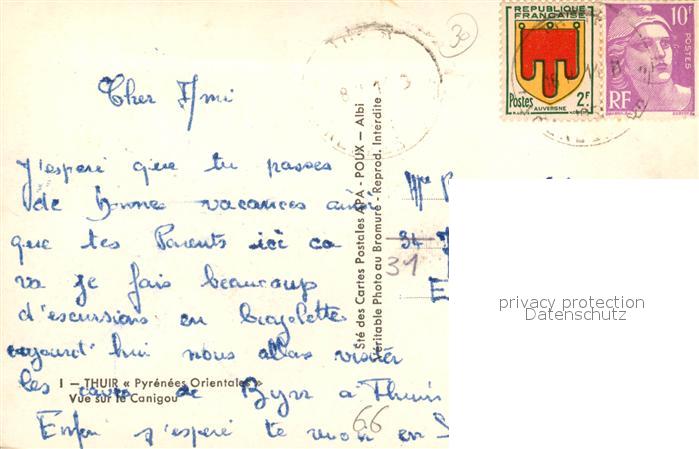 30
REPUBLIQUE FRANÇAISE
Postes 2F
AUVERGNE
10F
POSTES
RF
Cher Ami
J'esperé que tu passes
de bonnes vacances ainsi
que tes Parents ici ca
va je fais beaucoup
d'escursions en bicyclette
aujourd'hui nous allons visiter
les caves de Byrr a Thuir
Enfin j'esperé te
I — THUIR « Pyrénées Orientales »
Vue sur le Canigou
66
Sté des Cartes Postales APA - POUX — Albi
Véritable Photo au Bromure - Reprod. Interdite
34
31
privacy protection
Datenschutz